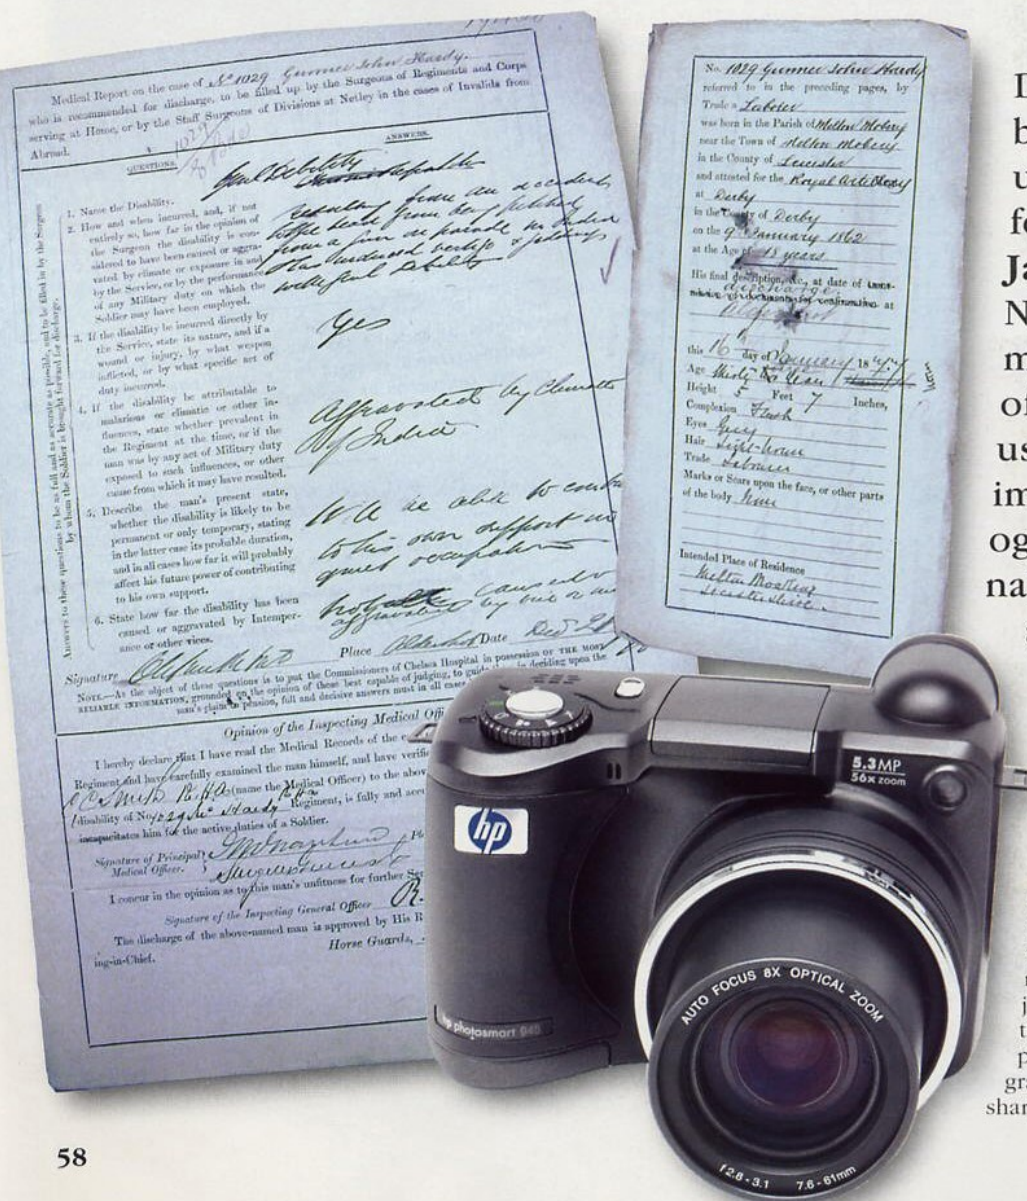 Medical Report on the case of No 1029 Gunner John Hardy.
who is recommended for discharge, to be filled up by the Surgeons of Regiments and Corps
serving at Home, or by the Staff Surgeons of Divisions at Netley in the cases of Invalids from
Abroad.
QUESTIONS. ANSWERS.
Answers to these questions to be as full and as accurate as possible, and to be filled in by the Surgeon
by whom the Soldier is brought forward for discharge.
1. Name the Disability.
2. How and when incurred, and, if not
entirely so, how far in the opinion of
the Surgeon the disability is con-
sidered to have been caused or aggra-
vated by climate or exposure in and
by the Service, or by the performance
of any Military duty on which the
Soldier may have been employed.
Debility
resulting from an accident
to the head from being pitched
from a gun on parade in India
Has induced vertigo &
with Debility
3. If the disability be incurred directly by
the Service, state its nature, and if a
wound or injury, by what weapon
inflicted, or by what specific act of
duty incurred.
Yes
4. If the disability be attributable to
malarious or climatic or other in-
fluences, state whether prevalent in
the Regiment at the time, or if the
man was by any act of Military duty
exposed to such influences, or other
cause from which it may have resulted.
Aggravated by Climate
of India
5. Describe the man's present state,
whether the disability is likely to be
permanent or only temporary, stating
in the latter case its probable duration,
and in all cases how far it will probably
affect his future power of contributing
to his own support.
Will be able to
to his own support in
quiet occupation
6. State how far the disability has been
caused or aggravated by Intemper-
ance or other vices.
Not caused or
aggravated by vice or
Signature Place Aldershot Date
NOTE.—As the object of these questions is to put the Commissioners of Chelsea Hospital in possession OF THE MOST
RELIABLE INFORMATION, grounded on the opinion of those best capable of judging, to guide in deciding upon the
man's claim to pension, full and decisive answers must in all cases
Opinion of the Inspecting Medical Offi
I hereby declare that I have read the Medical Records of the c
Regiment and have carefully examined the man himself, and have verifie
Smith R.H.A (name the Medical Officer) to the above
disability of No 1029 Hardy Regiment, is fully and accu
incapacitates him for the active duties of a Soldier.
Signature of Principal
Medical Officer.
I concur in the opinion as to this man's unfitness for further Ser
Signature of the Inspecting General Officer R.
The discharge of the above-named man is approved by His R
ing-in-Chief.
Horse Guards,
No. 1029 Gunner John Hardy
referred to in the preceding pages, by
Trade a Laborer
was born in the Parish of Melton Mobery
near the Town of Melton Mobery
in the County of Leicester
and attested for the Royal Artillery
at Derby
in the County of Derby
on the 9 January 1862
at the Age of years
His final description, &c. at date of
discharge
at
this 16 day of January 18
Age
Height 5 Feet 7 Inches,
Complexion Fresh
Eyes Grey
Hair
Trade Labourer
Marks or Scars upon the face, or other parts
of the body None
Intended Place of Residence
Melton
Leicestershire
5.3MP
56x zoom
hp
hp photosmart 945
AUTO FOCUS 8X OPTICAL ZOOM
f2.8 - 3.1 7.6 - 61mm
58